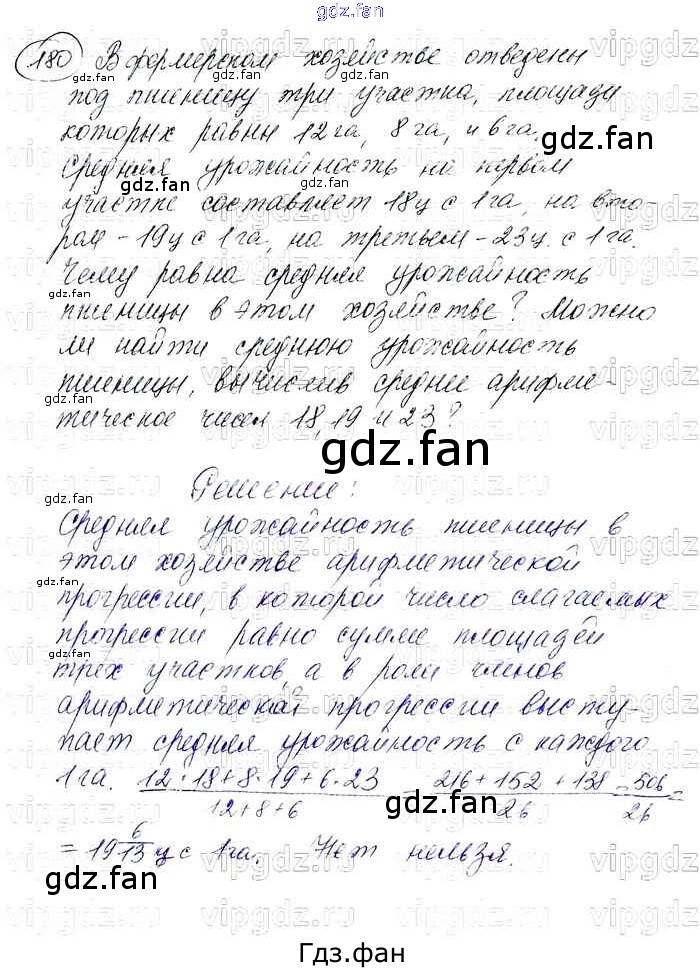 gdz.fan
180 В фермерском хозяйстве отведены
под пшеницу три участка, площади
которых равны 12 га, 8 га, и 6 га.
Средняя урожайность на первом
участке составляет 18 ц с 1 га, на вто-
рая - 19 ц с 1 га, на третьем - 23 ц. с 1 га.
Чему равна средняя урожайность
пшеницы в этом хозяйстве? Можно
ли найти среднюю урожайность
пшеницы, вычислив среднее арифме-
тическое чисел 18, 19 и 23?
Решение:
Средняя урожайность пшеницы в
этом хозяйстве арифметической
прогрессии, в которой число слагаемых
прогрессии равно сумме площадей
трех участков, а в роли членов
арифметической прогрессии высту-
пает средняя урожайность с каждого
1 га. (12·18+8·19+6·23)/(12+8+6) = (216+152+138)/26 = 506/26 =
= 19 6/13 ц с 1 га. Нет нельзя.
Гдз.фан